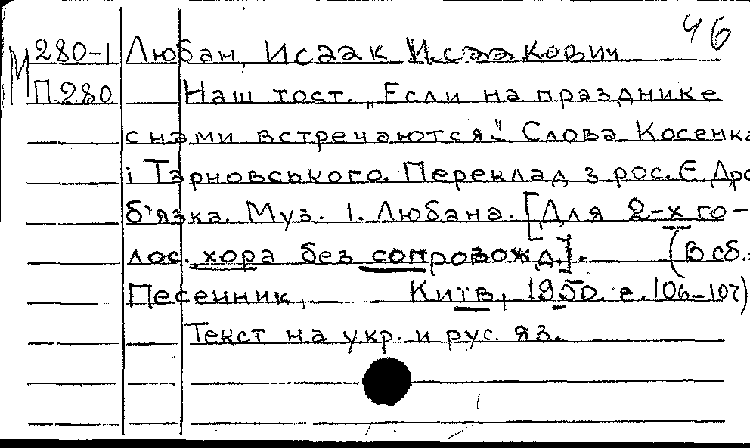 46
М 280-1 Любан, Исаак Исаакович
П280 Наш тост. „Если на празднике
с нами встречаются." Слова Косенка
і Тарновського. Переклад з рос. Є. Дро
б'язка. Муз. І. Любана. [Для 2-х го-
лос. хора без сопровожд.]. (В сб.:
Песенник, Київ, 1950. с. 106-107)
Текст на укр. и рус. яз.